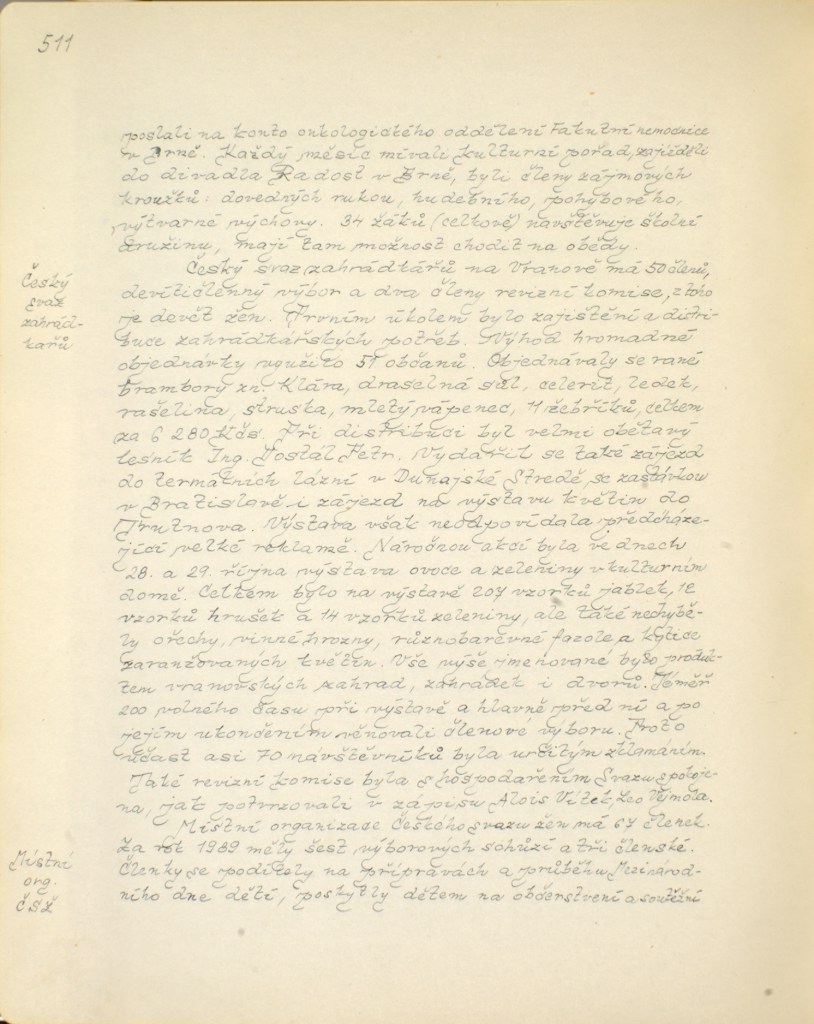 511
poslali na konto onkologického oddělení Fakutní nemocnice
v Brně. Každý měsíc mívali kulturní pořad, zajížděli
do divadla Radost v Brně, byli členy zájmových
kroužků: dovedných rukou, hudebního, pohybového,
výtvarné výchovy. 34 žáků (celkově) navštěvuje školní
družinu, mají tam možnost chodit na obědy.
Český
svaz
zahrád-
kářů
Český svaz zahrádkářů na Vranově má 50 členů,
devítičlenný výbor a dva členy revizní komise, z toho
je devět žen. Prvním úkolem bylo zajištění a distri-
buce zahrádkářských potřeb. Výhod hromadné
objednávky využilo 51 občanů. Objednávaly se rané
brambory zn. Klára, draselná sůl, celerit, ledek,
rašelina, struska, mletý vápenec, 11 žebříků, celkem
za 6 280 Kčs. Při distribuci byl velmi obětavý
lesník Ing. Dostál Petr. Vydařil se také zájezd
do termálních lázní v Dunajské Stredě, se zastávkou
v Bratislavě i zájezd na výstavu květin do
Trutnova. Výstava však neodpovídala předcháze-
jící velké reklamě. Náročnou akcí byla ve dnech
28. a 29. října výstava ovoce a zeleniny v kulturním
domě. Celkem bylo na výstavě 207 vzorků jablek, 12
vzorků hrušek a 14 vzorků zeleniny, ale také nechybě-
ly ořechy, vinné hrozny, různobarevné fazole, a kytice
zaranžovaných květin. Vše výše jmenované bylo produk-
tem vranovských zahrad, zahrádek i dvorů. Téměř
200 volného času při výstavě a hlavně před ní a po
jejím ukončením věnovali členové výboru. Proto
účast asi 70 návštěvníků byla určitým zklamáním.
Také revizní komise byla s hospodařením Svazu spokoje-
na, jak potvrzovali v zápisu Alois Vítek, Leo Výmola.
Místní
org.
ČSŽ
Místní organizace Českého svazu žen má 67 členek.
Za rok 1989 měly šest výborových schůzí a tři členské.
Členky se podílely na přípravách a průběhu Mezinárod-
ního dne dětí, poskytly dětem na občerstvení a soutěžní